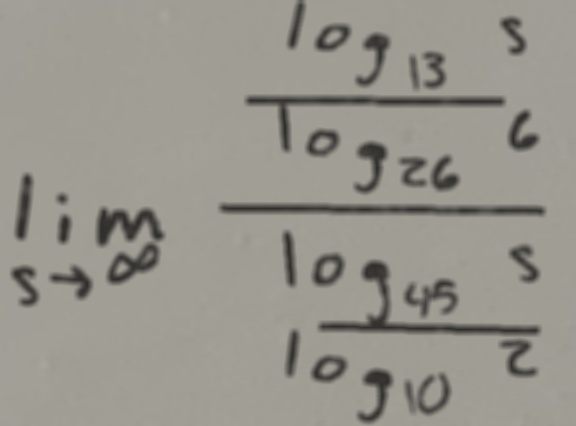 lim s→∞ \frac{\frac{log_{13} s}{log_{26} 6}}{\frac{log_{45} s}{log_{10} 2}}